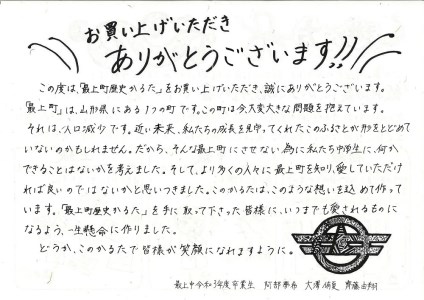 お買い上げいただき
ありがとうございます!!
この度は、「最上町歴史かるた」をお買い上げいただき、誠にありがとうございます。
「最上町」は、山形県にある1つの町です。この町は今、大変大きな問題を抱えています。
それは、人口減少です。近い未来、私たちの成長を見守ってくれたこのふるさとが形をとどめて
いないのかもしれません。だから、そんな最上町にさせない為に私たち中学生に、何か
できることはないかを考えました。そして、より多くの人々に最上町を知り、愛していただけ
れば良いのではないかと思いつきました。このかるたは、このような想いを込めて作って
います。「最上町歴史かるた」を手に取って下さった皆様に、いつまでも愛されるものに
なるよう、一生懸命に作りました。
どうか、このかるたで皆様が笑顔になれますように。
最上中令和3年度卒業生 阿部 大澤 齊藤由翔